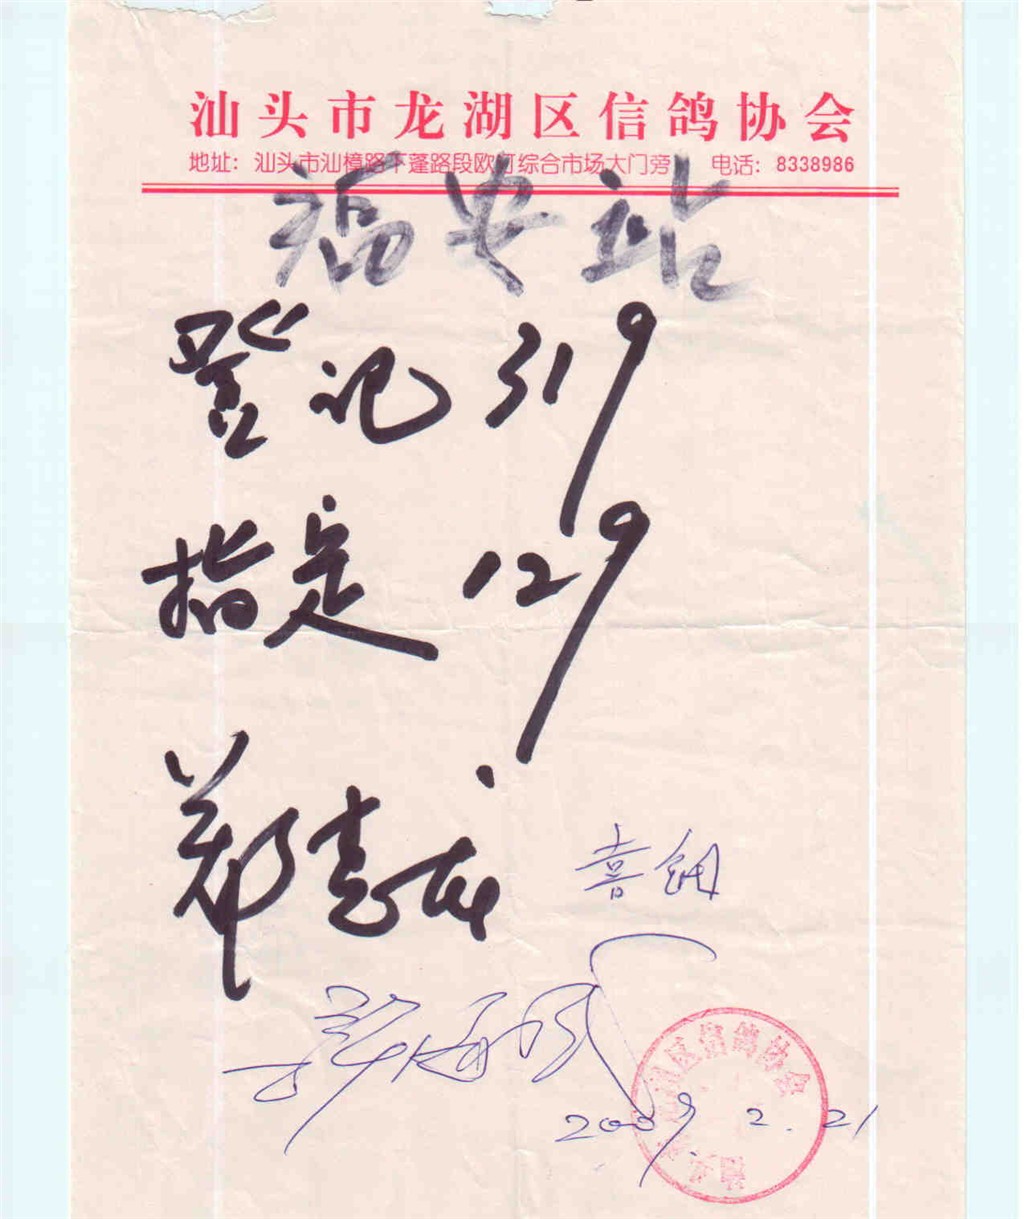 汕头市龙湖区信鸽协会
地址：汕头市汕樟路下蓬路段欧汀综合市场大门旁 电话：8338986
福安站
登记 319
指定 129
郑志龙
喜钢
2009.2.21
龙湖区信鸽协会